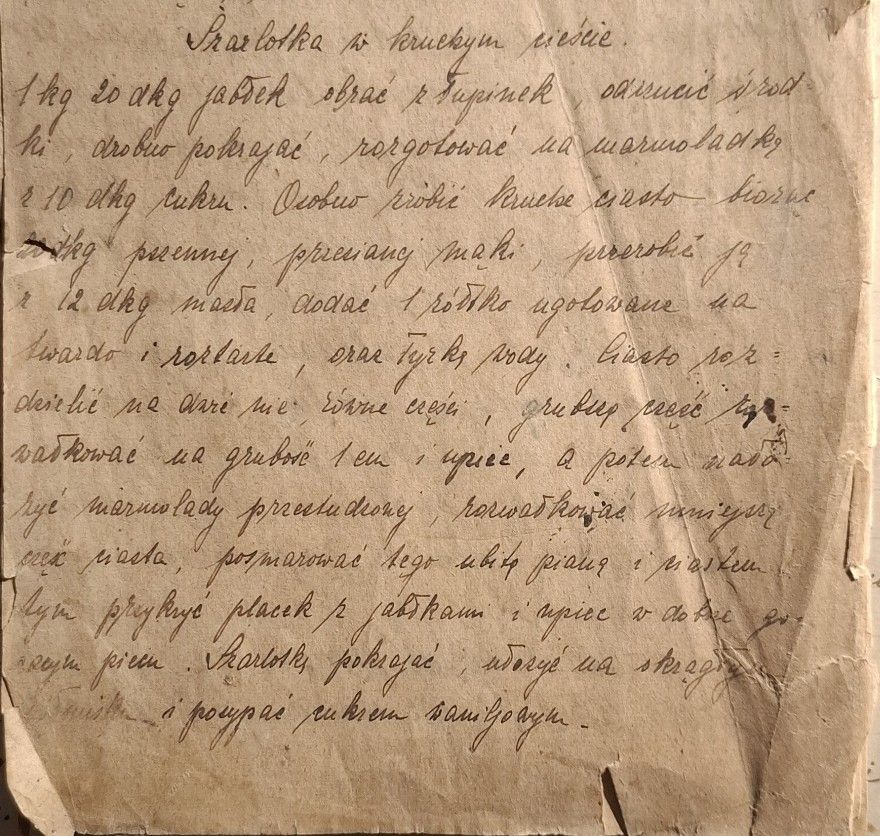 Szarlotka w kruchym cieście.
1 kg 20 dkg jabłek obrać z łupinek, odrzucić środ-
ki, drobno pokrajać, rozgotować na marmoladkę
z 10 dkg cukru. Osobno zrobić kruche ciasto biorąc
dkg pszennej, przesianej mąki, przerobić ją
z 12 dkg masła, dodać 1 żółtko ugotowane na
twardo i roztarte, oraz łyżkę wody. Ciasto roz=
dzielić na dwie nie równe części, grubszą część roz=
wałkować na grubość 1 cm i upiec, a potem nało-
żyć marmolady przestudzonej, rozwałkować mniejszą
część ciasta, posmarować tęgo ubitą pianą i ciastem
tym przykryć placek z jabłkami i upiec w dobrze go-
rącym piecu. Szarlotkę pokrajać, ułożyć na okrągłym
półmisku i posypać cukrem waniljowym.